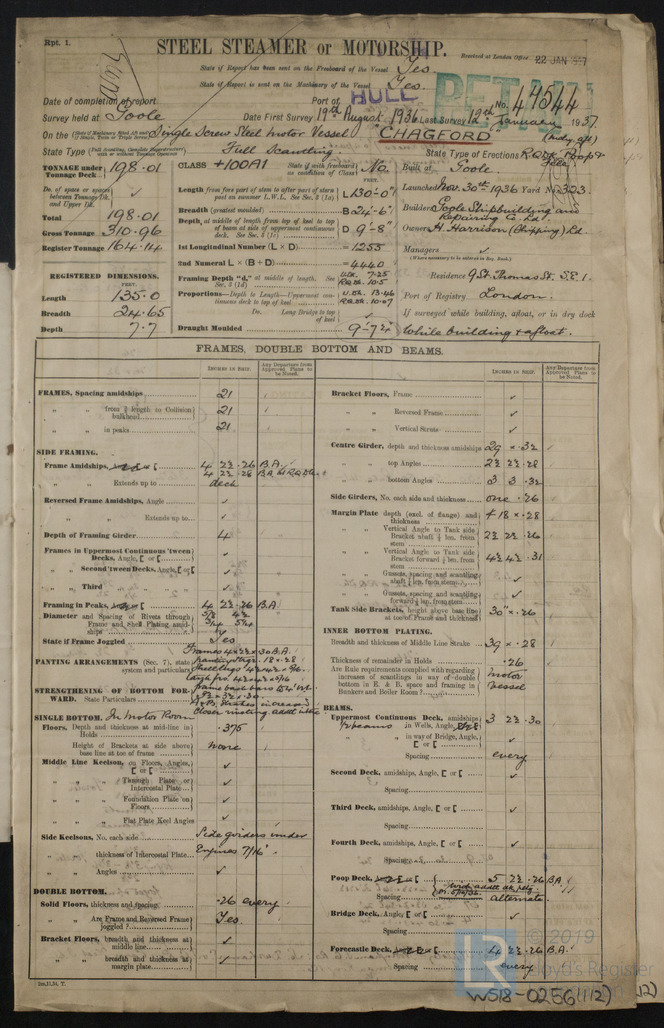 Rpt. 1.
STEEL STEAMER or MOTORSHIP.
Received at London Office 22 JAN 1937
State if Report has been sent on the Freeboard of the Vessel Yes.
State if Report is sent on the Machinery of the Vessel Yes.
RETAIN
Date of completion of report
Port of HULL
No. 47544
Survey held at Poole
Date First Survey 19th August 1936 Last Survey 12th January 1937.
On the Single Screw Steel motor Vessel "CHAGFORD"
State Type Full Scantling
State Type of Erections
TONNAGE under Tonnage Deck 198.01
CLASS +100A1
State if with freeboard as condition of Class No.
Built at Poole.
Do. of space or spaces between Tonnage Dk. and Upper Dk. ✓
Length from fore part of stem to after part of stern post on summer L.W.L. See Sec. 3 (1a) L 130'-0"
Launched Nov. 30th 1936 Yard No. 323.
Total 198.01
Breadth (greatest moulded) B 24'-6"
Builder Poole Shipbuilding and Repairing Co. Ltd.
Gross Tonnage 310.96
Depth, at middle of length from top of keel to top of beam at side of uppermost continuous deck. See Sec. 3 (1c) D 9'-8"
Owner H. Harrison (Shipping) Ld.
Register Tonnage 164.14
1st Longitudinal Number (L × D) = 1255
Managers ✓
2nd Numeral L × (B + D) = 4440
(Where necessary to be entered in Reg. Book.)
REGISTERED DIMENSIONS.
FEET.
Framing Depth "d," at middle of length. See Sec. 3 (1d)
Residence 9 St. Thomas St. S.E.1.
Length 135.0
Proportions—Depth to Length—Uppermost continuous deck to top of keel
Port of Registry London.
Breadth 24.65
Do. Long Bridge to top of keel ✓
If surveyed while building, afloat, or in dry dock
Depth 7.7
Draught Moulded 9'-7¾"
While building & afloat.
FRAMES, DOUBLE BOTTOM AND BEAMS.
INCHES IN SHIP.
Any Departure from Approved Plans to be Noted.
INCHES IN SHIP.
Any Departure from Approved Plans to be Noted.
FRAMES, Spacing amidships 21
" " from ⅗ length to Collision bulkhead 21
" " in peaks 21
SIDE FRAMING.
Frame Amidships, 4 2½ .26 B.A.
" " Extends up to deck
Reversed Frame Amidships, Angle ✓
" " Extends up to ✓
Depth of Framing Girder 4
Frames in Uppermost Continuous 'tween Decks, Angle, [ or [ ✓
" " Second 'tween Decks, Angle, [ or [ ✓
" " Third " " ✓
Framing in Peaks, 4 2½ .26 B.A.
Diameter and Spacing of Rivets through Frame and Shell Plating amidships
State if Frame Joggled Yes
PANTING ARRANGEMENTS (Sec. 7), state system and particulars
STRENGTHENING OF BOTTOM FORWARD. State Particulars
SINGLE BOTTOM. In Motor Room
Floors, Depth and thickness at mid-line in Holds .375
Height of Brackets at side above base line at toe of frame none
Middle Line Keelson, on Floors, Angles, [ or [ ✓
" " Through Plate or Intercostal Plate ✓
" " Foundation Plate on Floors ✓
" " Flat Plate Keel Angles ✓
Side Keelsons, No. each side Side girders under
" " thickness of Intercostal Plate Engines 7/16"
" " Angles ✓
DOUBLE BOTTOM.
Solid Floors, thickness and spacing .26 every
" " Are Frame and Reversed Frame joggled? Yes.
Bracket Floors, breadth and thickness at middle line ✓
" " breadth and thickness at margin plate ✓
Bracket Floors, Frame ✓
" " Reversed Frame ✓
" " Vertical Struts ✓
Centre Girder, depth and thickness amidships 29 × .32
" " top Angles 2½ 2½ .28
" " bottom Angles 3 3 .32
Side Girders, No. each side and thickness one .26
Margin Plate depth (excl. of flange) and thickness
" " Vertical Angle to Tank side Bracket abaft ¼ len. from stem 2½ 2½ .26
" " Vertical Angle to Tank side Bracket forward ¼ len. from stem
" " Gussets, spacing and scantling abaft ¼ len. from stem ✓
" " Gussets, spacing and scantling forward ¼ len. from stem ✓
Tank Side Brackets, height above base line at toe of Frame and thickness 30" × .26
INNER BOTTOM PLATING.
Breadth and thickness of Middle Line Strake 39 × .28
Thickness of remainder in Holds .26
Are Rule requirements complied with regarding increases of scantlings in way of double bottom in E. & B. space and framing in Bunkers and Boiler Room? motor vessel
BEAMS.
Uppermost Continuous Deck, amidships in Wells, Angle 3 2½ .30
" " in way of Bridge, Angle, [ or [ ✓
Spacing every
Second Deck, amidships, Angle, [ or [ ✓
Spacing
Third Deck, amidships, Angle, [ or [ ✓
Spacing
Fourth Deck, amidships, Angle, [ or [ ✓
Spacing
Poop Deck, 5 2½ .26 B.A.
Spacing alternate
Bridge Deck, Angle, [ or [ ✓
Spacing
Forecastle Deck, 4 2½ .26 B.A.
Spacing every
© 2019
Lloyd's Register
WS18-0256(1/2)